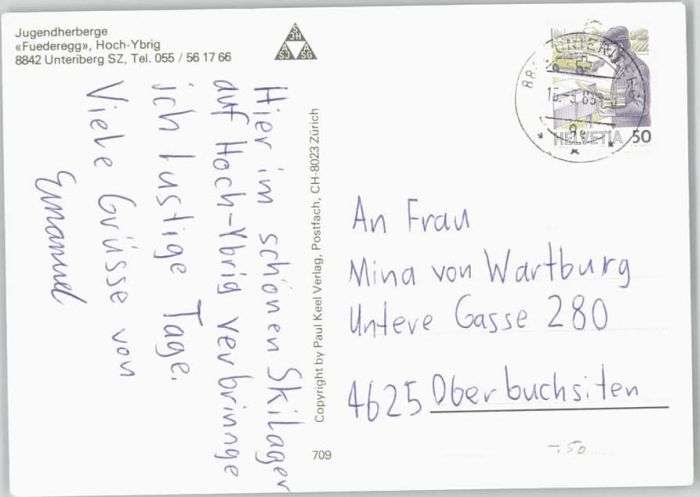 Jugendherberge
«Fuederegg», Hoch-Ybrig
8842 Unteriberg SZ, Tel. 055 / 56 17 66
JH
SJ SG
HELVETIA 50
Hier im schönen Skilager
auf Hoch-Ybrig verbrinnge
ich lustige Tage.
Viele Grüsse von
Emanuel
Copyright by Paul Keel Verlag, Postfach, CH-8023 Zürich
709
An Frau
Mina von Wartburg
Untere Gasse 280
4625 Oberbuchsiten
-.50